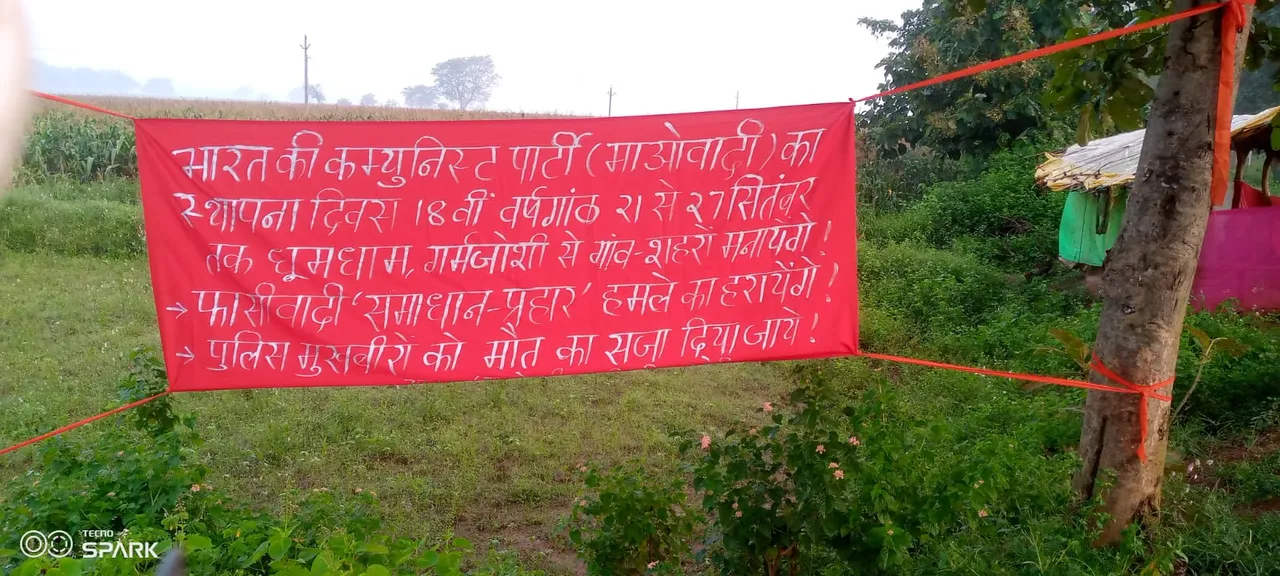 भारत की कम्युनिस्ट पार्टी (माओवादी) का
स्थापना दिवस 18वीं वर्षगांठ 21 से 27 सितंबर
तक धूमधाम, गर्मजोशी से गांव-शहरों मनायेंगे!
→ फासीवादी 'समाधान-प्रहार' हमले का हरायेंगे!
→ पुलिस मुखबीरों को मौत का सजा दिया जाये!
TECNO
SPARK